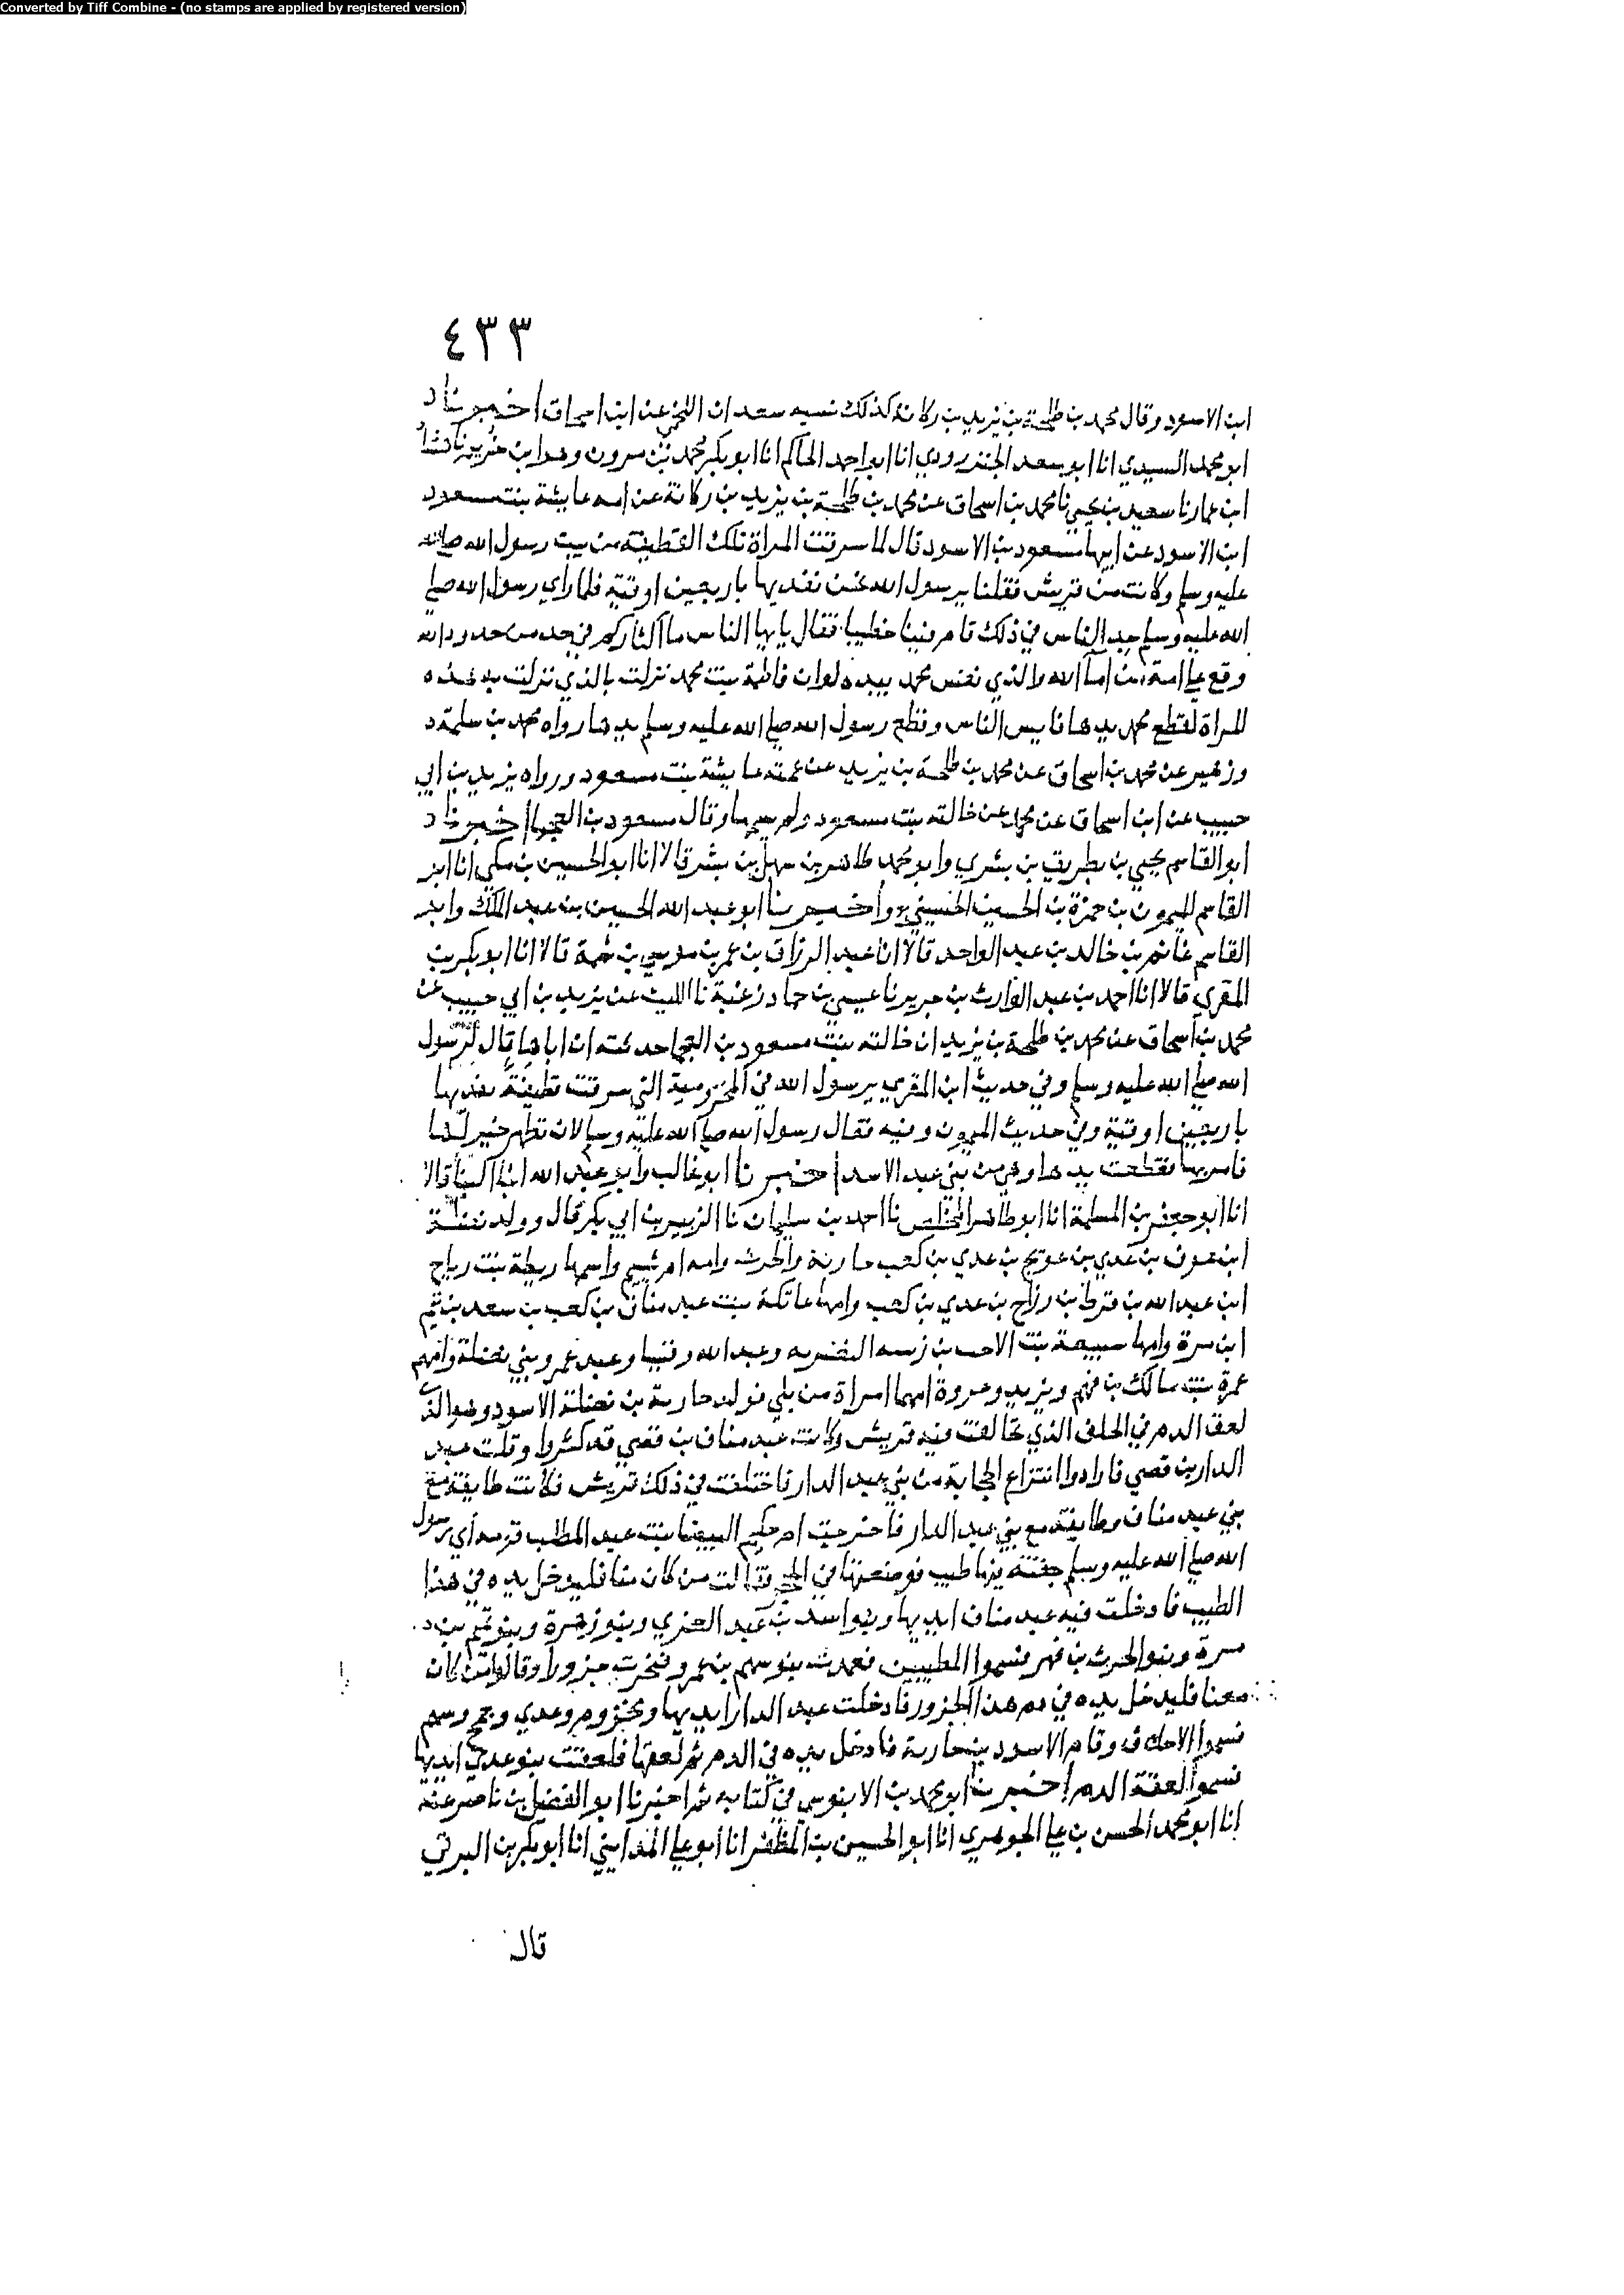 Converted by Tiff Combine - (no stamps are applied by registered version)
٤٣٣
ابن الاسود وقال محمد بن طلحة بن يزيد بن ركانة كذلك نسبه سعدان اللخمي عن ابن اسحاق اخبرنا
ابو محمد السيدي انا ابو سعد الجنزرودي انا ابو احمد الحاكم انا ابو بكر محمد بن مرون وهو ابن خريم نا هشام
ابن عمار نا سعيد بن يحيي نا محمد بن اسحاق عن محمد بن طلحة بن يزيد بن ركانة عن امه عايشة بنت مسعود
ابن الاسود عن ابيها مسعود بن الاسود قال لما سرقت المراة تلك القطيفة من بيت رسول الله صلي الله
عليه وسلم وكانت من قريش فقلنا يرسول الله نحن نفديها باربعين اوقية فلما راي رسول الله صلي
الله عليه وسلم جد الناس في ذلك قام فينا خطيبا فقال يايها الناس ما اكثاركم في حد من حدود الله
وقع علي امة من اما الله والذي نفس محمد بيده لو ان فاطمة بنت محمد نزلت بالذي نزلت به هذه
المراة لقطع محمد يدها فايس الناس وقطع رسول الله صلي الله عليه وسلم يدها رواه محمد بن سلمة
وزهير عن محمد بن اسحاق عن محمد بن طلحة بن يزيد عن عمته عايشة بنت مسعود ورواه يزيد بن ابي
حبيب عن ابن اسحاق عن محمد عن خالته بنت مسعود ولم يسمها وقال مسعود بن العجما اخبرنا
ابو القاسم يحيي بن بطريق بن بشري وابو محمد طاهر بن سهل بن بشر قالا انا ابو الحسين بن مكي انا ابو
القاسم الميمون بن حمزة بن الحسين الحسيني ح واخبرنا ابو عبد الله الحسين بن عبد الملك وابو
القاسم غانم بن خالد بن عبد الواحد قالا انا عبد الرزاق بن عمر بن موسي بن شمة قالا انا ابو بكر بن
المقري قالا انا احمد بن عبد الوارث بن جرير نا عيسي بن حماد زغبة نا الليث عن يزيد بن ابي حبيب عن
محمد بن اسحاق عن محمد بن طلحة بن يزيد ان خالته بنت مسعود بن العجما حدثته ان اباها قال لرسول
الله صلي الله عليه وسلم وفي حديث ابن المقري يرسول الله في المخزومية التي سرقت قطيفة نفديها
باربعين اوقية وفي حديث الميمون وفيه فقال رسول الله صلي الله عليه وسلم لان تطهر خير لها
فامر بها فقطعت يدها وهي من بني عبد الاسد اخبرنا ابو غالب وابو عبد الله ابنا البنا قالا
انا ابو جعفر بن المسلمة انا ابو طاهر المخلص نا احمد بن سليمان نا الزبير بن ابي بكر قال وولد نضلة
ابن عوف بن عدي بن عويج بن عدي بن كعب حارثة والحرث وامه ام شييم واسمها ريطة بنت رياح
ابن عبد الله بن قرط بن رزاح بن عدي بن كعب وامها عاتكة بنت عبد مناف بن كعب بن سعد بن تيم
ابن مرة وامها سبيعة بنت الاحب بن زبينه النضريه وعبد الله وفنيا وعبد عمرو بني نضلة وامهم
عمرة بنت مالك بن فهم ويزيد وعروة امهما امراة من بلي فولد حارثة بن نضلة الاسود وهو الذي
لعق الدم في الحلف الذي تحالفت فيه قريش وكانت عبد مناف بن قصي قد كثروا وقلت عبد
الدار بن قصي فارادوا انتزاع الحجابة من بني عبد الدار فاختلفت في ذلك قريش فكانت طايفة مع
بني عبد مناف وطايفة مع بني عبد الدار فاخرجت ام حكيم البيضا بنت عبد المطلب توءمة ابي رسول
الله صلي الله عليه وسلم جفنة فيها طيب فوضعتها في الحجر فقالت من كان منا فليدخل يده في هذا
الطيب فادخلت فيه عبد مناف ايديها وبنو اسد بن عبد العزي وبنو زهرة وبنو تيم بن
مرة وبنو الحرث بن فهر فسموا المطيبين فعمدت بنو سهم بن عمرو فنحرت جزورا وقالوا من كان
معنا فليدخل يده في دم هذه الجزور فادخلت عبد الدار ايديها ومخزوم وعدي وجمح وسهم
فسموا الاحلاف وقام الاسود بن حارثة فادخل يده في الدم ثم لعقها فلعقت بنو عدي ايديها
فسموا لعقة الدم اخبرنا ابو محمد بن الابنوسي في كتابه ثم اخبرنا ابو الفضل بن ناصر عنه
انا ابو محمد الحسن بن علي الجوهري انا ابو الحسين بن المظفر انا ابو علي المدايني انا ابو بكر بن البرقي
قال